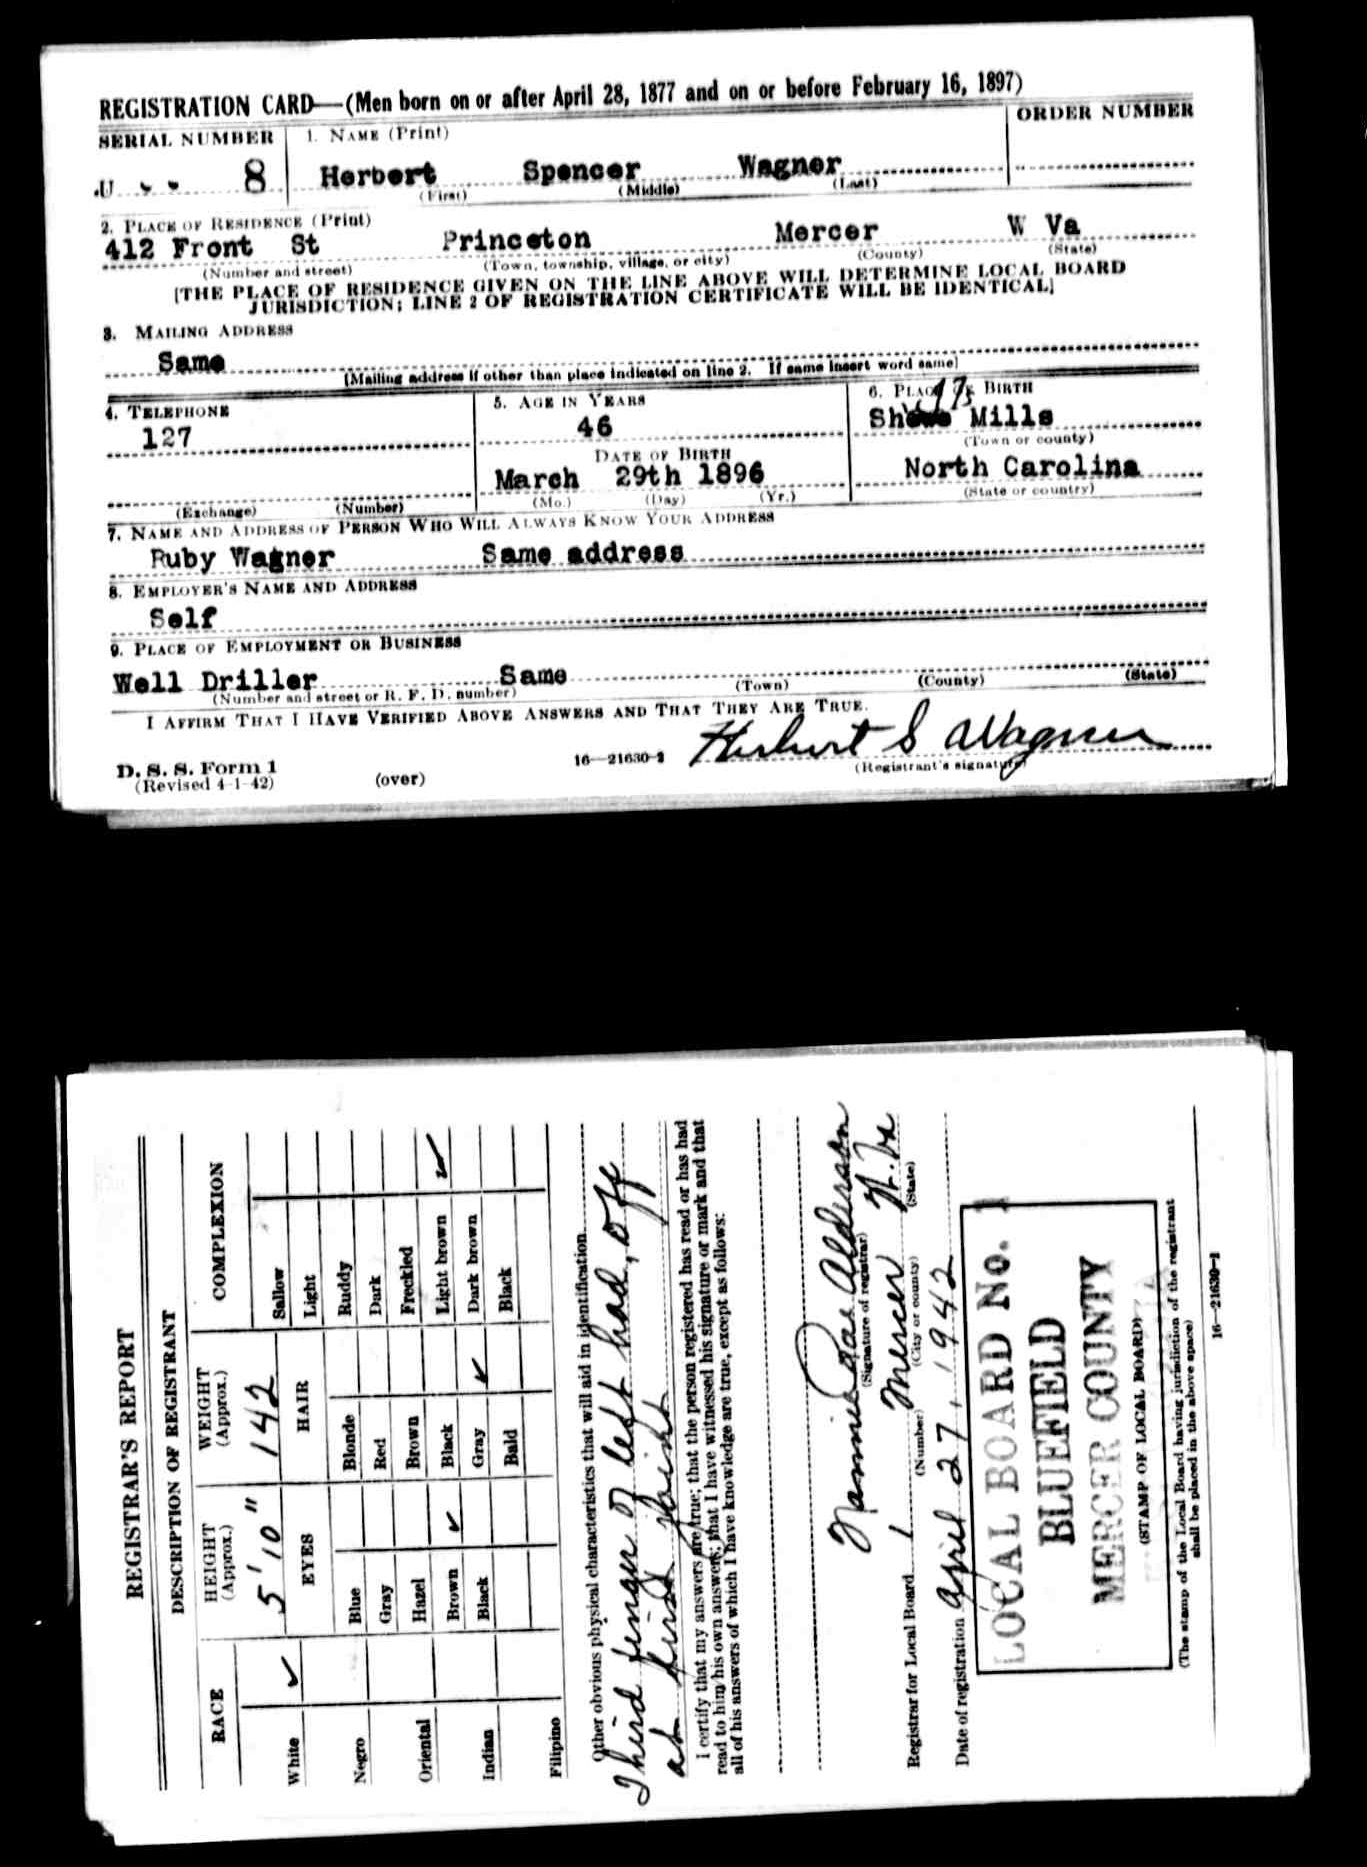 REGISTRATION CARD—(Men born on or after April 28, 1877 and on or before February 16, 1897)
SERIAL NUMBER
1. NAME (Print)
ORDER NUMBER
U 8
Herbert Spencer Wagner
(First) (Middle) (Last)
2. PLACE OF RESIDENCE (Print)
412 Front St Princeton Mercer W Va
(Number and street) (Town, township, village, or city) (County) (State)
[THE PLACE OF RESIDENCE GIVEN ON THE LINE ABOVE WILL DETERMINE LOCAL BOARD
JURISDICTION; LINE 2 OF REGISTRATION CERTIFICATE WILL BE IDENTICAL]
3. MAILING ADDRESS
Same
[Mailing address if other than place indicated on line 2. If same insert word same]
4. TELEPHONE
127
(Exchange) (Number)
5. AGE IN YEARS
46
DATE OF BIRTH
March 29th 1896
(Mo.) (Day) (Yr.)
6. PLACE OF BIRTH
Mills
(Town or county)
North Carolina
(State or country)
7. NAME AND ADDRESS OF PERSON WHO WILL ALWAYS KNOW YOUR ADDRESS
Ruby Wagner Same address
8. EMPLOYER'S NAME AND ADDRESS
Self
9. PLACE OF EMPLOYMENT OR BUSINESS
Well Driller Same
(Number and street or R. F. D. number) (Town) (County) (State)
I AFFIRM THAT I HAVE VERIFIED ABOVE ANSWERS AND THAT THEY ARE TRUE.
Herbert S Wagner
D. S. S. Form 1
(Revised 4-1-42)
(over)
16—21630-2
(Registrant's signature)
REGISTRAR'S REPORT
DESCRIPTION OF REGISTRANT
RACE
HEIGHT
(Approx.)
WEIGHT
(Approx.)
COMPLEXION
White ✓
5' 10"
142
Sallow
EYES
HAIR
Light
Negro
Blue
Blonde
Ruddy
Gray
Red
Dark
Oriental
Hazel
Brown
Freckled
Brown ✓
Black
Light brown ✓
Indian
Black
Gray ✓
Dark brown
Bald
Black
Filipino
Other obvious physical characteristics that will aid in identification
Third finger of left had, off
at first joint
I certify that my answers are true; that the person registered has read or has had
read to him his own answers; that I have witnessed his signature or mark and that
all of his answers of which I have knowledge are true, except as follows:
Nannie Rae Alderson
(Signature of registrar)
Registrar for Local Board 1 Mercer W. Va
(Number) (City or county) (State)
Date of registration April 27, 1942
LOCAL BOARD No. 1
BLUEFIELD
MERCER COUNTY
(STAMP OF LOCAL BOARD)
(The stamp of the Local Board having jurisdiction of the registrant
shall be placed in the above space)
16—21630-2